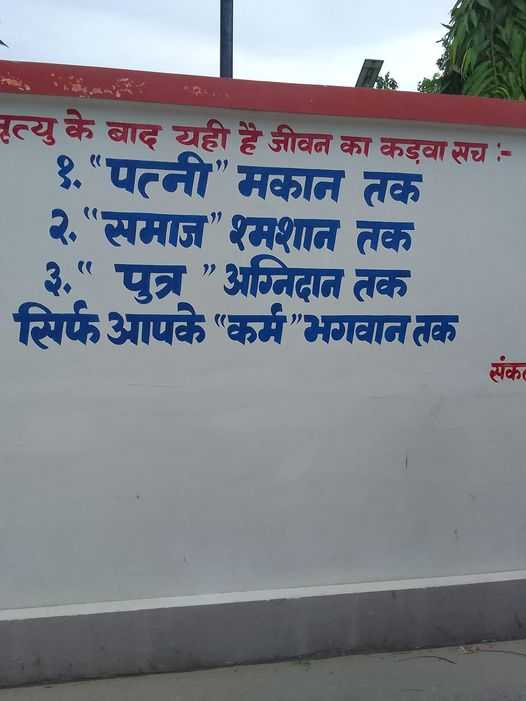 मृत्यु के बाद यही है जीवन का कड़वा सच :-
१. "पत्नी" मकान तक
२. "समाज" श्मशान तक
३. " पुत्र " अग्निदान तक
सिर्फ आपके "कर्म" भगवान तक